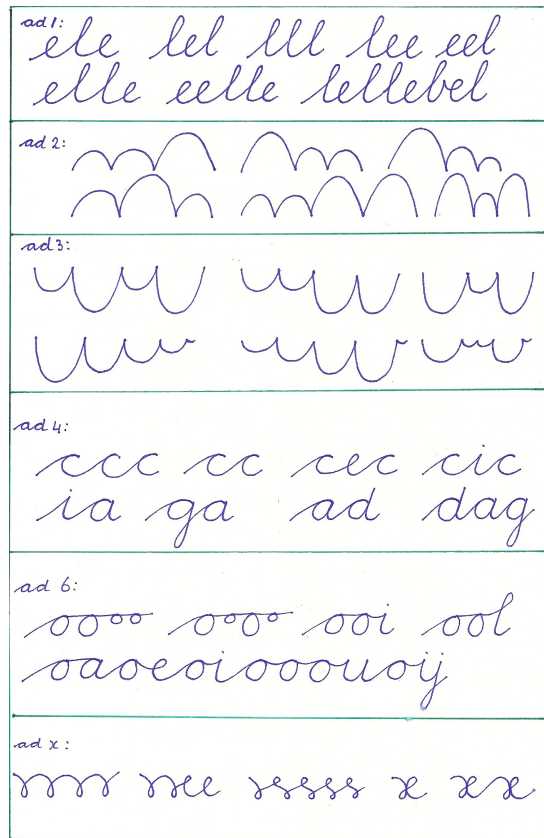 ad 1:
ele lel lll lee eel
elle eelle lellebel
ad 2:
ad 3:
ad 4:
ccc cc cec cic
ia ga ad dag
ad 6:
oooo oooo ooi ool
oaoeoioooouoij
ad x:
x xx